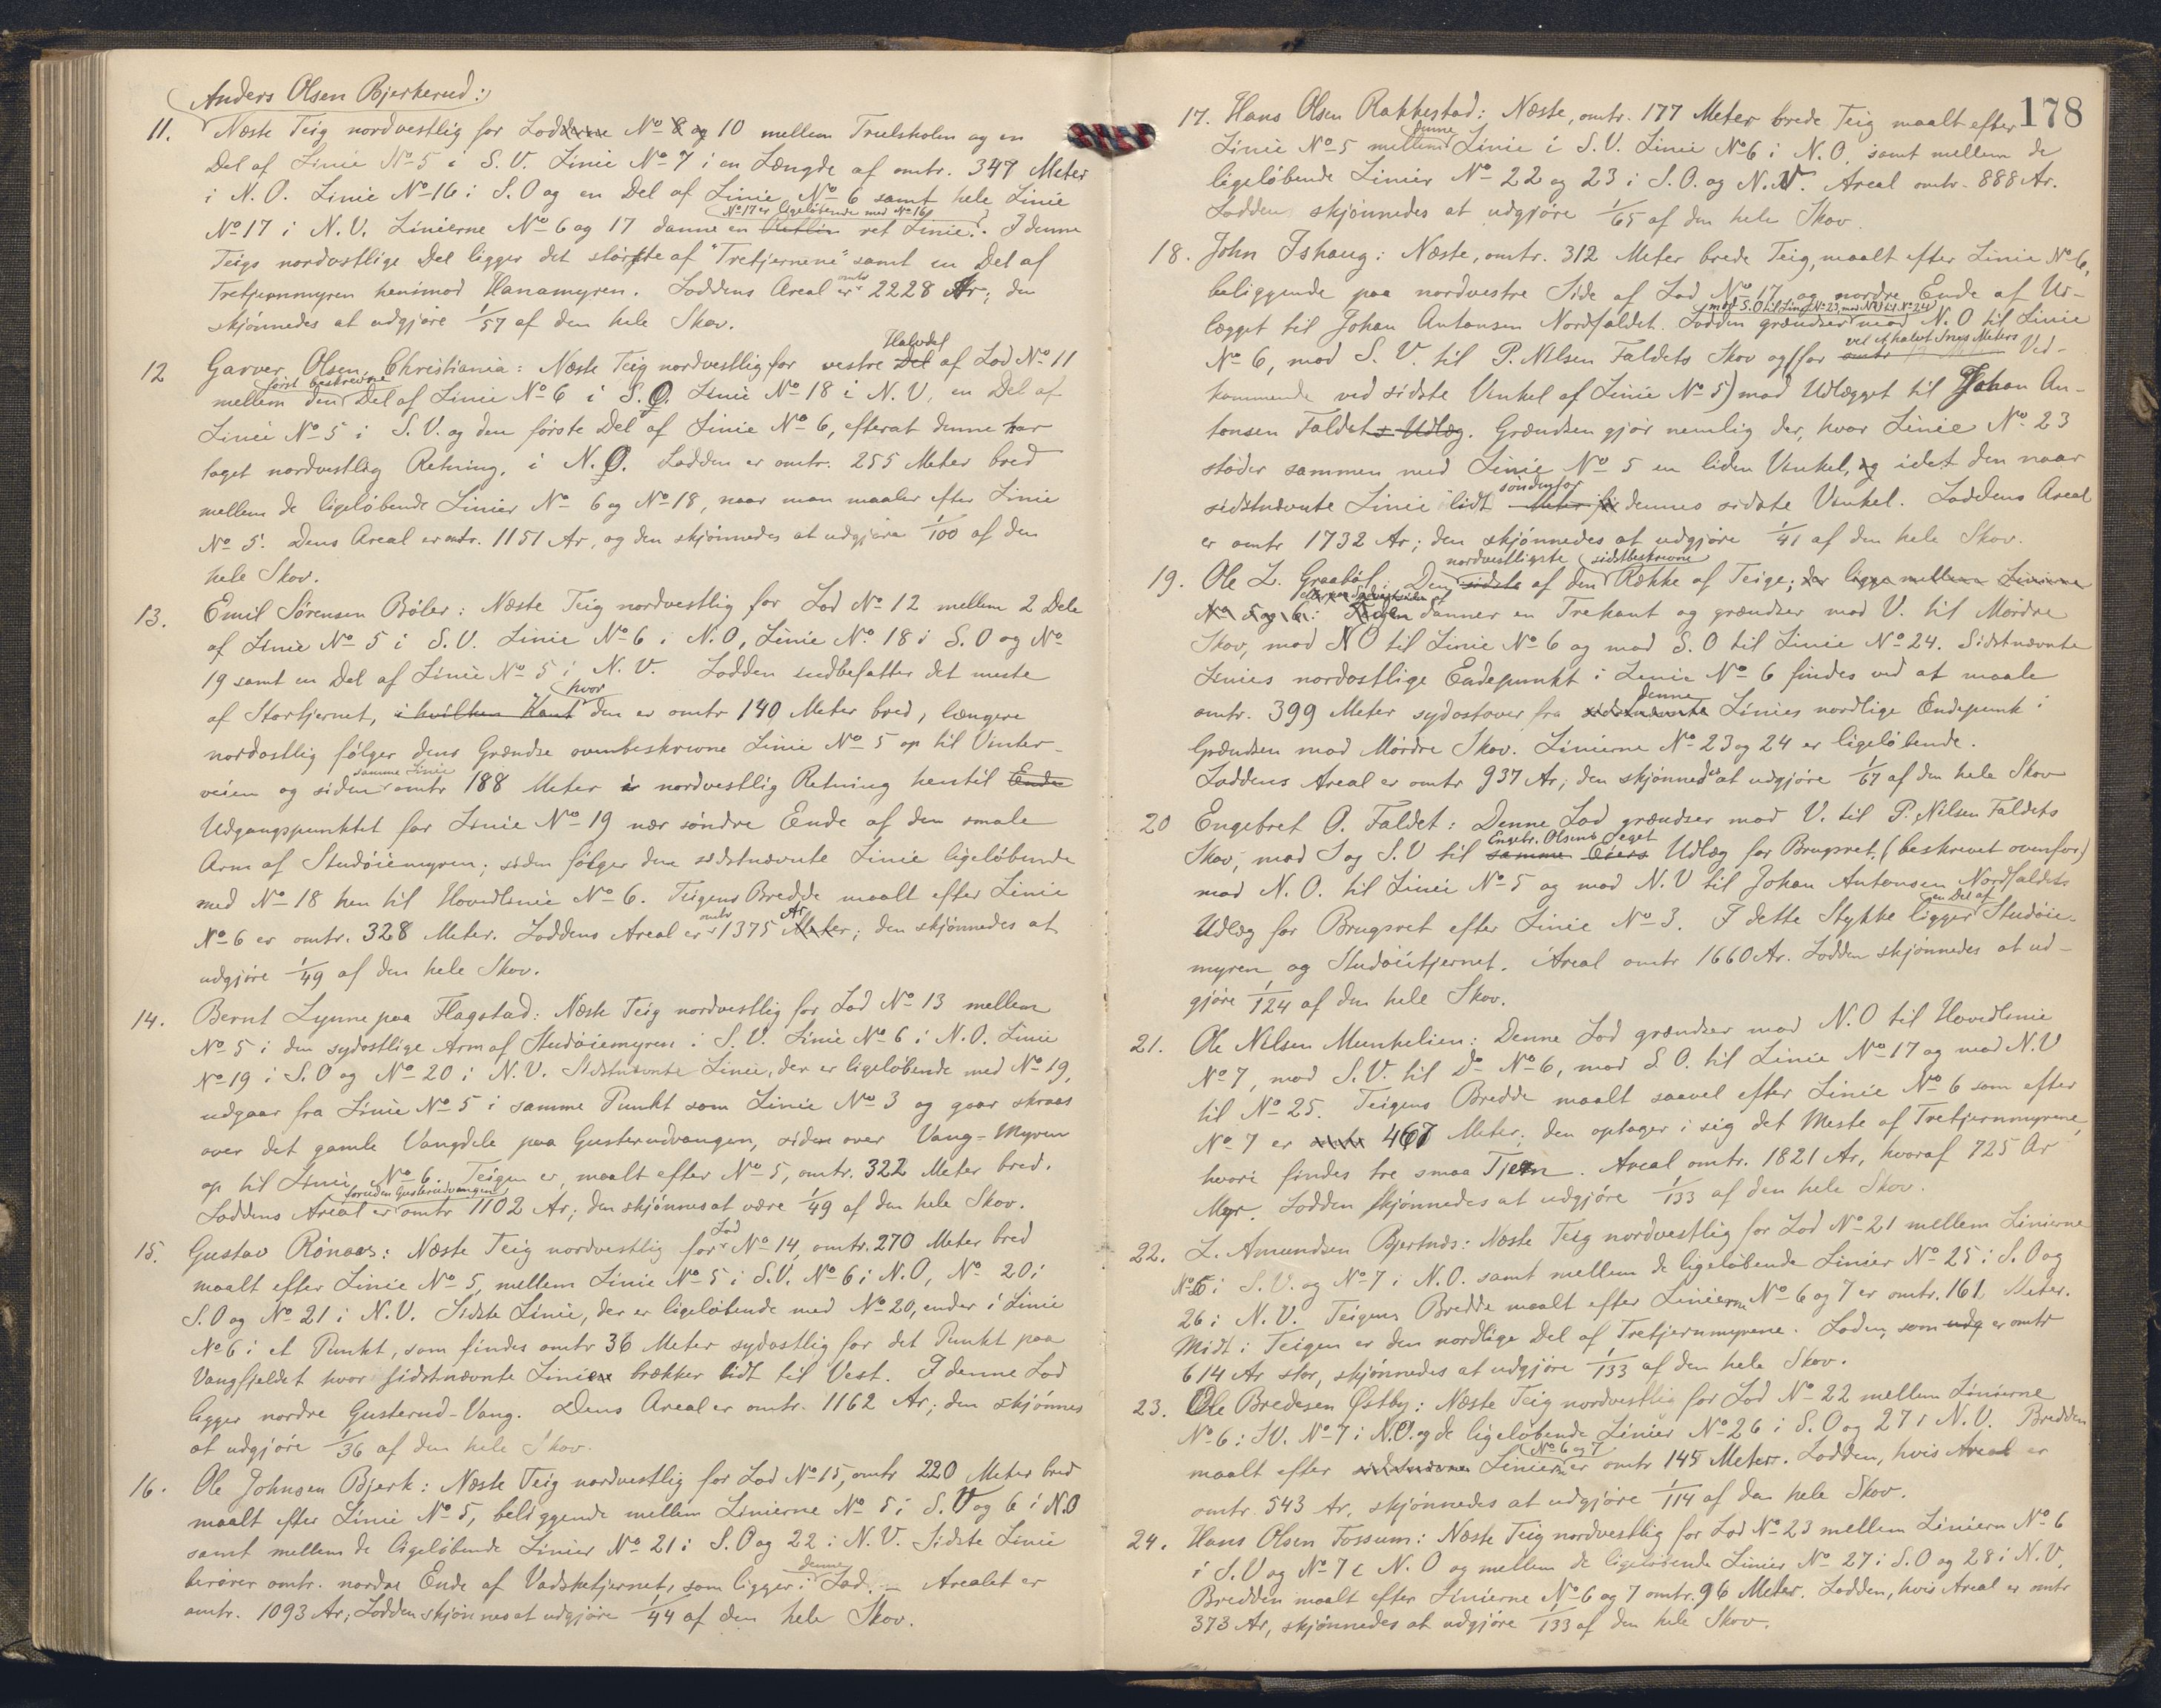 Anders Olsen Bjerkerud:
11. Næste Teig nordvestlig for Lod No 10 mellem Trulsholm og en
Del af Linie No 5 i S. V. Linie No 7 i en Længde af omtr. 349 Meter
i N. O. Linie No 16 i S. O og en Del af Linie No 6 samt hele Linie
No 17 er ligeløbende med No 16
No 17 i N. V. Linierne No 6 og 17 danne en ret Linie. I denne
Teigs nordostlige Del ligger det største af "Tretjernene" samt en Del af
Tretjernmyren henimod Hanamyren. Loddens Areal er omtr 2228 Ar; den
skjønnedes at udgjøre 1/57 af den hele Skov.
12 Garver Olsen, Christiania: Næste Teig nordvestlig for vestre Halvdel af Lod No 11
mellem den først beskrevne Del af Linie No 6 i S. O. Linie No 18 i N. V, en Del af
Linie No 5 i S. V. og den første Del af Linie No 6, efterat denne har
taget nordvestlig Retning, i N. O. Lodden er omtr. 255 Meter bred
mellem de ligeløbende Linier No 6 og No 18, naar man maaler efter Linie
No 5. Dens Areal er omtr. 1151 Ar, og den skjønnedes at udgjøre 1/100 af den
hele Skov.
13. Emil Sørensen Bøler: Næste Teig nordvestlig for Lod No 12 mellem 2 Dele
af Linie No 5 i S. V. Linie No 6 i N. O, Linie No 18 i S. O og No
19 samt en Del af Linie No 5 i N. V. Lodden indbefatter det meste
af Stortjernet, i hvilken Kant hvor den er omtr 140 Meter bred, længere
nordostlig følger dens Grændse ovenbeskrevne Linie No 5 op til Vinter-
veien og siden samme Linie omtr 188 Meter i nordvestlig Retning hentil Ende
Udgangspunktet for Linie No 19 nær søndre Ende af den smale
Arm af Studøiemyren; siden følger den sidstnævnte Linie ligeløbende
med No 18 hen til Hovedlinie No 6. Teigens Bredde maalt efter Linie
No 6 er omtr. 328 Meter. Loddens Areal er omtr 1375 Ar; den skjønnedes at
udgjøre 1/49 af den hele Skov.
14. Bernt Lynne paa Flagstad: Næste Teig nordvestlig for Lod No 13 mellem
No 5 i den sydostlige Arm af Studøiemyren i S. V. Linie No 6 i N. O. Linie
No 19 i S. O og No 20 i N. V. Sidstnævnte Linie, der er ligeløbende med No 19,
udgaar fra Linie No 5 i samme Punkt som Linie No 3 og gaar skraas
over det gamle Vangdele paa Gusterudvangen, siden over Vang-Myren
op til Linie No 6. Teigen er, maalt efter No 5, omtr. 322 Meter bred.
Loddens Areal er foruden Gusterudvangen omtr 1102 Ar; den skjønnes at være 1/49 af den hele Skov.
15. Gustav Rønaas: Næste Teig nordvestlig for Lod No 14, omtr. 270 Meter bred
maalt efter Linie No 5, mellem Linie No 5 i S. V. No 6 i N. O, No 20 i
S. O og No 21 i N. V. Sidste Linie, der er ligeløbende med No 20, ender i Linie
No 6 i et Punkt, som findes omtr 36 Meter sydostlig for det Punkt paa
Vangfjeldet hvor sidstnævnte Linie brækker lidt til Vest. I denne Lod
ligger nordre Gusterud-Vang. Dens Areal er omtr. 1162 Ar; den skjønnes
at udgjøre 1/36 af den hele Skov.
16. Ole Johnsen Bjerk: Næste Teig nordvestlig for Lod No 15, omtr 220 Meter bred
maalt efter Linie No 5, beliggende mellem Linierne No 5 i S. V og 6 i N. O
samt mellem de ligeløbende Linier No 21 i S. O og 22 i N. V. Sidste Linie
berører omtr. nordre Ende af Vadsketjernet, som ligger i denne Lod. – Arealet er
omtr. 1093 Ar; Lodden skjønnes at udgjøre 1/44 af den hele Skov.
178
17. Hans Olsen Rakkestad: Næste, omtr. 177 Meter brede Teig maalt efter
Linie No 5 mellem denne Linie i S. V. Linie No 6 i N. O, samt mellem de
ligeløbende Linier No 22 og 23 i S. O. og N. V. Areal omtr. 888 Ar.
Lodden skjønnedes at udgjøre 1/65 af den hele Skov.
18. John Ishaug: Næste, omtr. 312 Meter brede Teig, maalt efter Linie No 6,
beliggende paa nordvestre Side af Lod No 17 og nordre Ende af Ud-
lægget til Johan Antonsen Nordfaldet. Lodden grændser mod S. O til Linie No 23, mod N V til No 24 mod N. O til Linie
No 6, mod S. V. til P. Nilsen Faldets Skov og (for ved et halvt Snes Meters Ved-
kommende ved sidste Vinkel af Linie No 5) mod Udlægget til Johan An-
tonsen Faldets Udlæg. Grændsen gjør nemlig der, hvor Linie No 23
støder sammen med Linie No 5 en liden Vinkel, og idet den naar
sidstnævnte Linie lidt søndenfor dennes sidste Vinkel. Loddens Areal
er omtr 1732 Ar; den skjønnedes at udgjøre 1/41 af den hele Skov.
19. Ole L. Graabøl: Den nordvestligste sidste af den sidstbeskrevne Række af Teige; der ligge mellem Linierne
No 5 og 6: Teigen danner en Trekant og grændser mod V. til Mørdre
Skov, mod N O til Linie No 6 og mod S. O til Linie No 24. Sidstnævnte
Linies nordostlige Endepunkt i Linie No 6 findes ved at maale
omtr. 399 Meter sydostover fra denne Linies nordlige Endepunk i
Grændsen mod Mørdre Skov. Linierne No 23 og 24 er ligeløbende.
Loddens Areal er omtr 937 Ar; den skjønnedes at udgjøre 1/67 af den hele Skov
20 Engebret O. Faldet: Denne Lod grændser mod V. til P. Nilsen Faldets
Skov, mod S og S. V til Engebr. Olsens eget samme Eiers Udlæg for Brugsret, (beskrevet ovenfor)
mod N. O. til Linie No 5 og mod N. V til Johan Antonsen Nordfaldets
Udlæg for Brugsret efter Linie No 3. I dette Stykke ligger en Del af Studøie-
myren og Studøietjernet. Areal omtr 1660 Ar. Lodden skjønnedes at ud-
gjøre 1/124 af den hele Skov.
21. Ole Nilsen Munkelien: Denne Lod grændser mod N. O til Hovedlinie
No 7, mod S. V. til Do No 6, mod S. O. til Linie No 17 og mod N. V
til No 25. Teigens Bredde maalt saavel efter Linie No 6 som efter
No 7 er omtr 467 Meter; den optager i sig det Meste af Tretjernmyrene,
hvori findes tre smaa Tjern. Areal omtr. 1821 Ar, hvoraf 725 Ar
Myr. Lodden skjønnedes at udgjøre 1/133 af den hele Skov.
22. L. Amundsen Bjertnes: Næste Teig nordvestlig for Lod No 21 mellem Linierne
No 6 i S. V. og No 7 i N. O. samt mellem de ligeløbende Linier No 25 i S. O og
26 i N. V. Teigens Bredde maalt efter Linierne No 6 og 7 er omtr. 161 Meter.
Midt i Teigen er den nordlige Del af Tretjernmyrene. Loden, som udg er omtr
614 Ar stor, skjønnedes at udgjøre 1/133 af den hele Skov.
23. Ole Bredesen Østby: Næste Teig nordvestlig for Lod No 22 mellem Linierne
No 6 i S V. No 7 i N. O. og de ligeløbende Linier No 26 i S. O og 27 i N. V. Bredden
maalt efter sidstnævnte Linierne No 6 og 7 er omtr 145 Meter. Lodden, hvis Areal er
omtr. 543 Ar, skjønnedes at udgjøre 1/114 af den hele Skov.
24. Hans Olsen Fossum: Næste Teig nordvestlig for Lod No 23 mellem Liniern No 6
i S. V og No 7 i N. O og mellem de ligeløbende Linier No 27 i S. O og 28 i N. V.
Bredden maalt efter Linierne No 6 og 7 omtr. 96 Meter. Lodden, hvis Areal er omtr
373 Ar, skjønnedes at udgjøre 1/133 af den hele Skov.